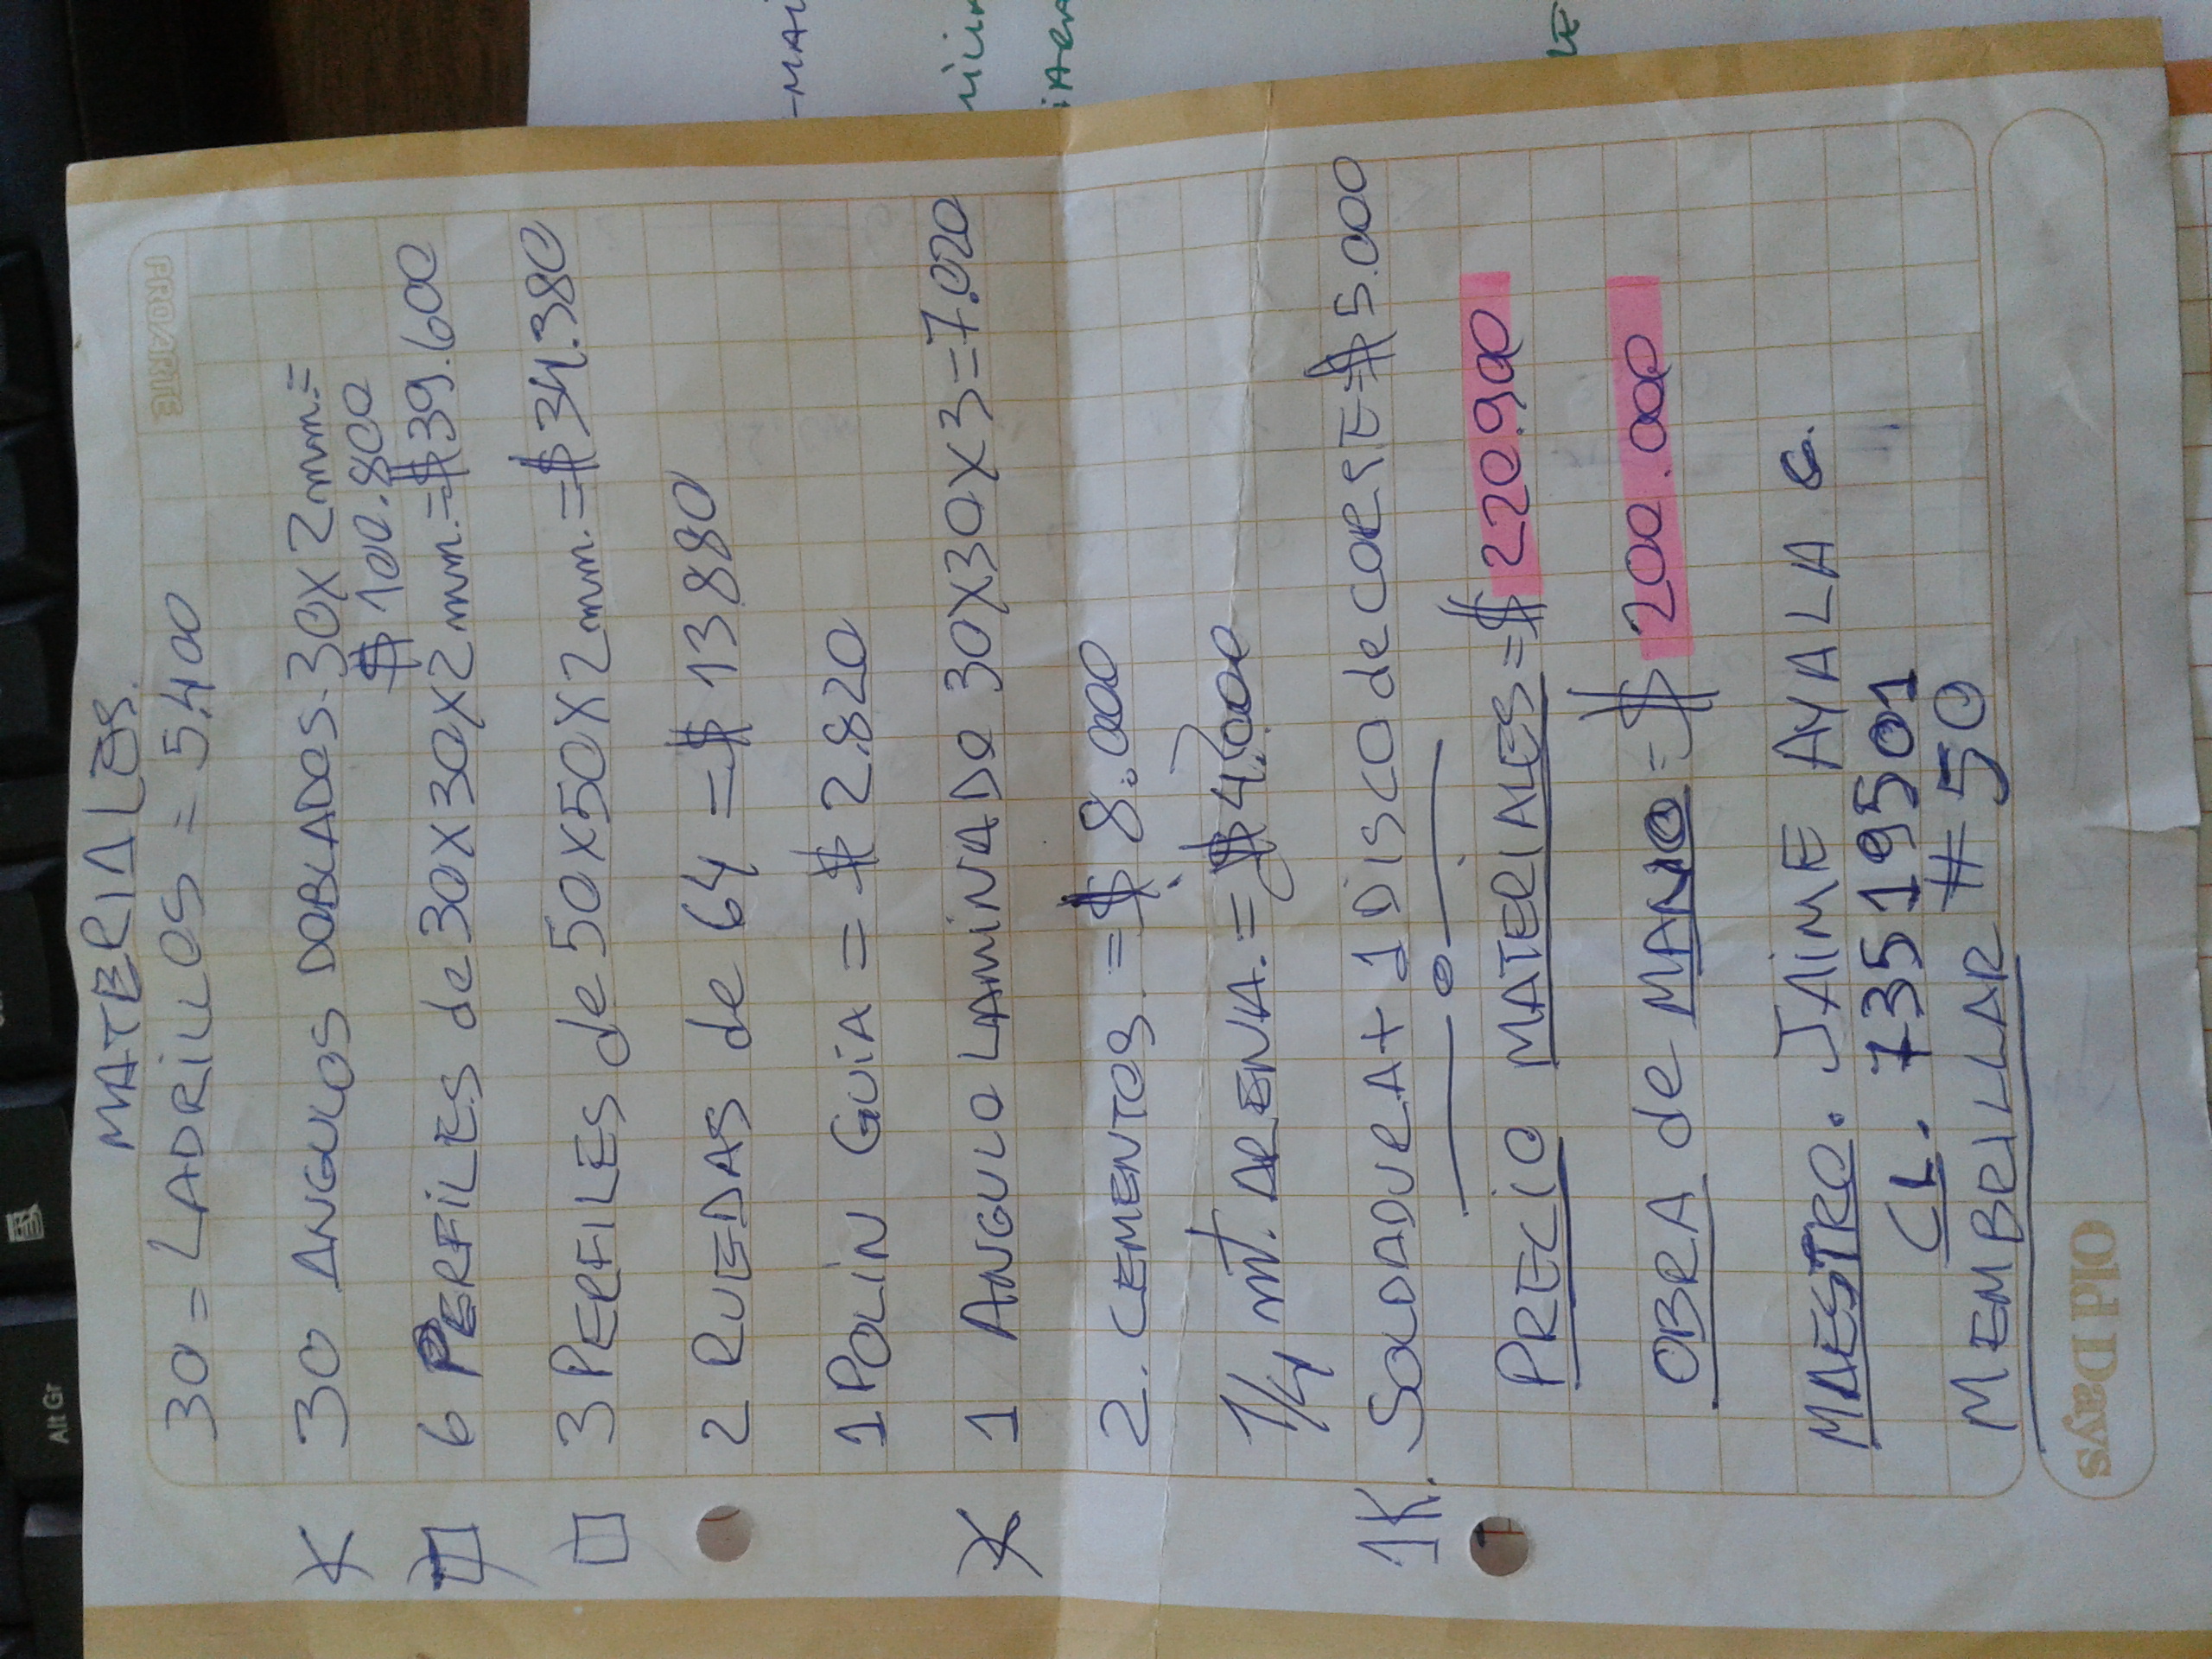 -MAI
PROARTE
MATERIALES.
30 = LADRILLOS = 5.400
30 ANGULOS DOBLADOS. 30X2mm. =
$ 100.800
6 PERFILES de 30X30X2mm. = $39.600
3 PERFILES de 50X50X2mm. = $34.380
2 RUEDAS de 64 = $ 13.880
1 POLIN GUIA = $ 2.820
1 ANGULO LAMINADO 30X30X3=7.020
2. CEMENTOS. = $ 8.000
1/4 mt. ARENA. = $ 4.000
1K. SOLDADURA + 1 DISCO de CORTE = $ 5.000
PRECIO MATERIALES = $ 220.900
OBRA de MANO = $ 200.000
MAESTRO. JAIME AYALA G.
CL. 73519501
MEMBRILLAR # 50
Old Days
Alt Gr